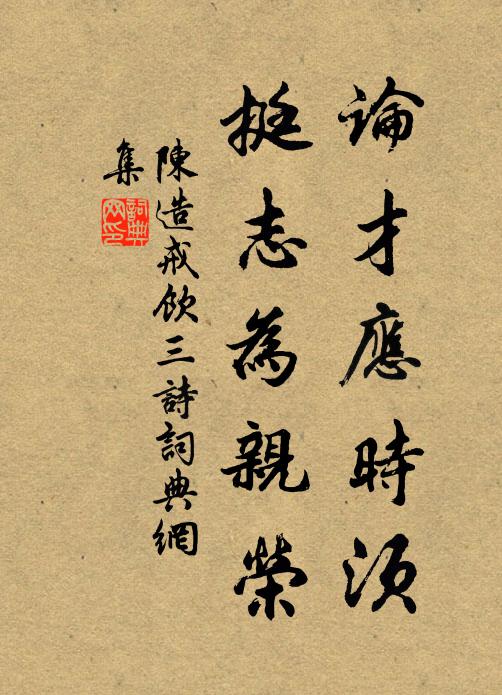 論才應時須
挺志為親榮
陳造戒飲三詩詞典網
集
詞典網印